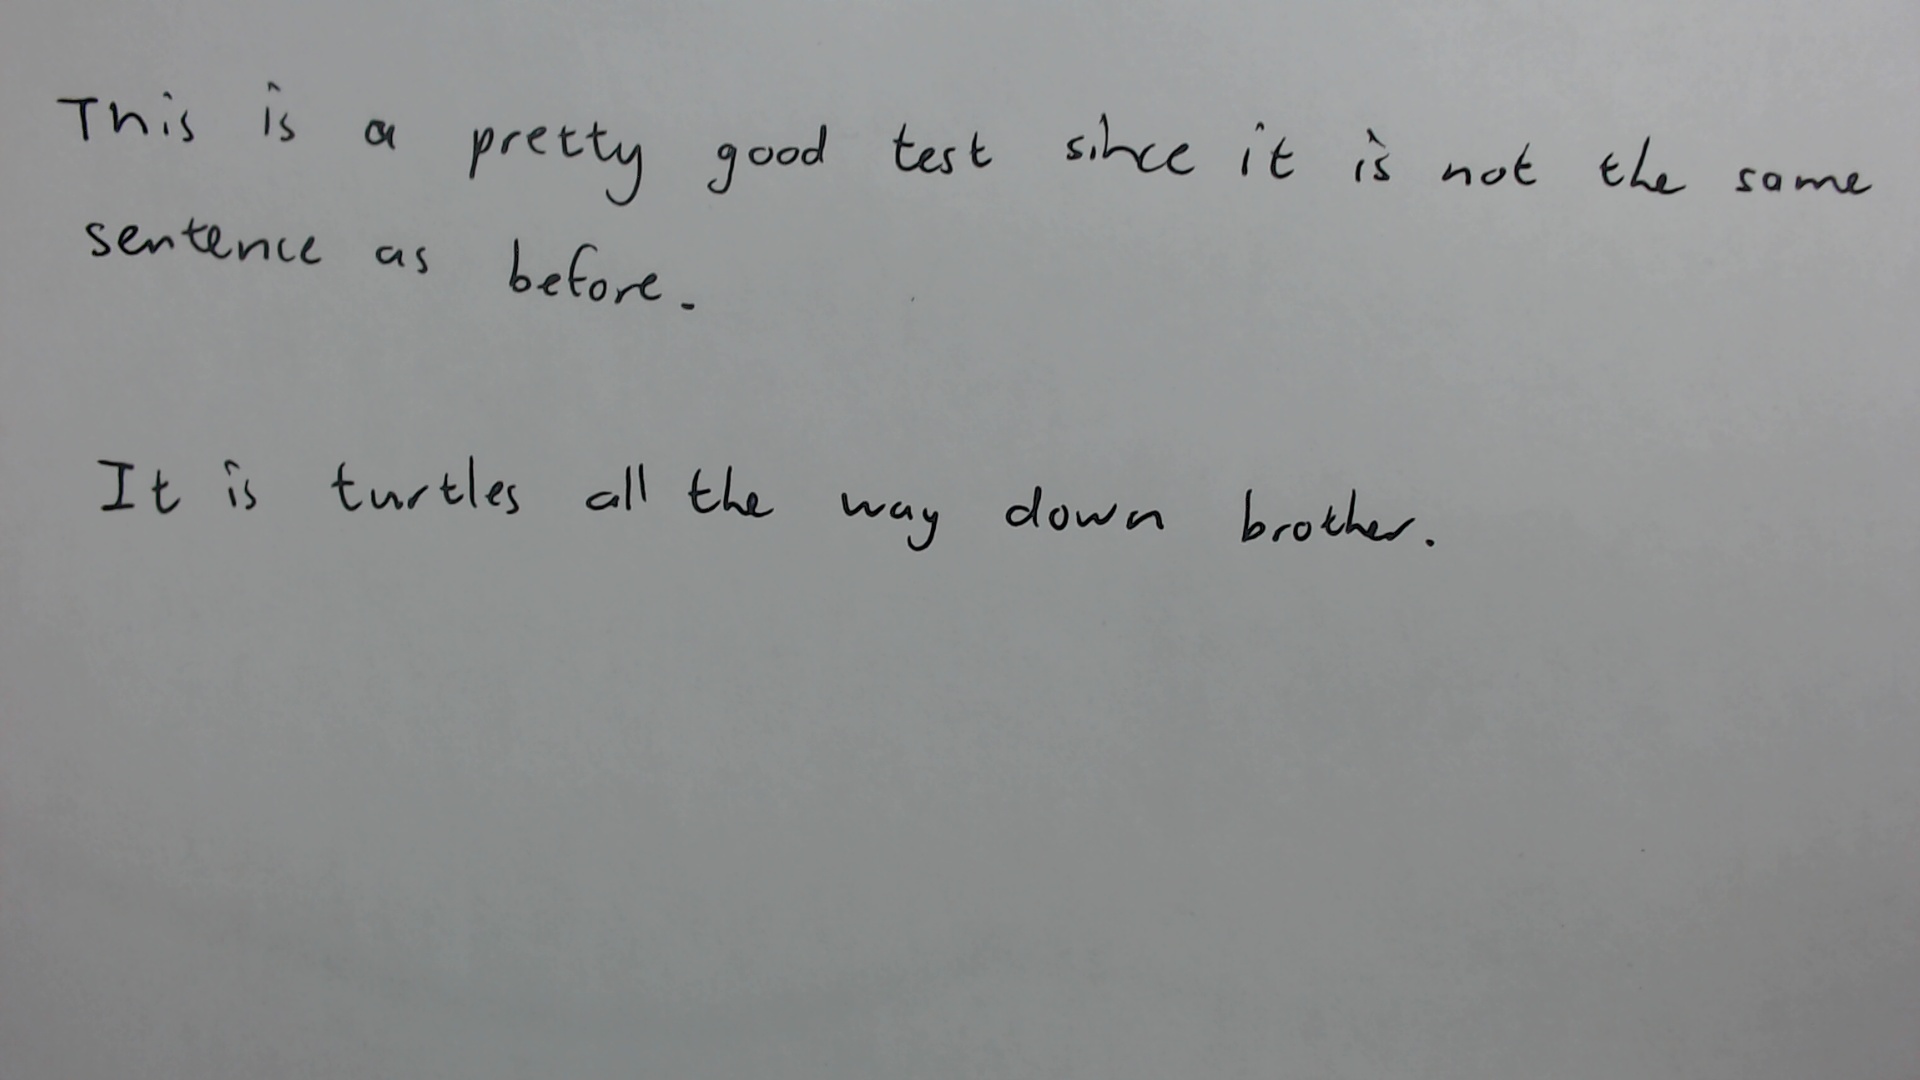 This is a pretty good test since it is not the same
sentence as before.
It is turtles all the way down brother.